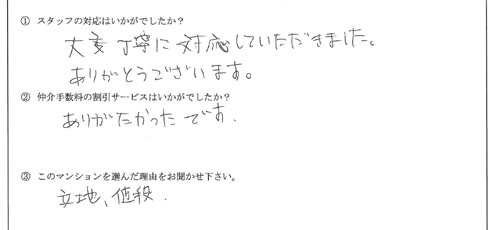 ① スタッフの対応はいかがでしたか？
大変丁寧に対応していただきました。
ありがとうございます。
② 仲介手数料の割引サービスはいかがでしたか？
ありがたかったです.
③ このマンションを選んだ理由をお聞かせ下さい。
立地、値段.